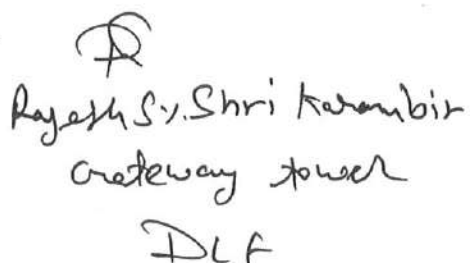 Rajesh S/. Shri Karambir
Gateway tower
DLF